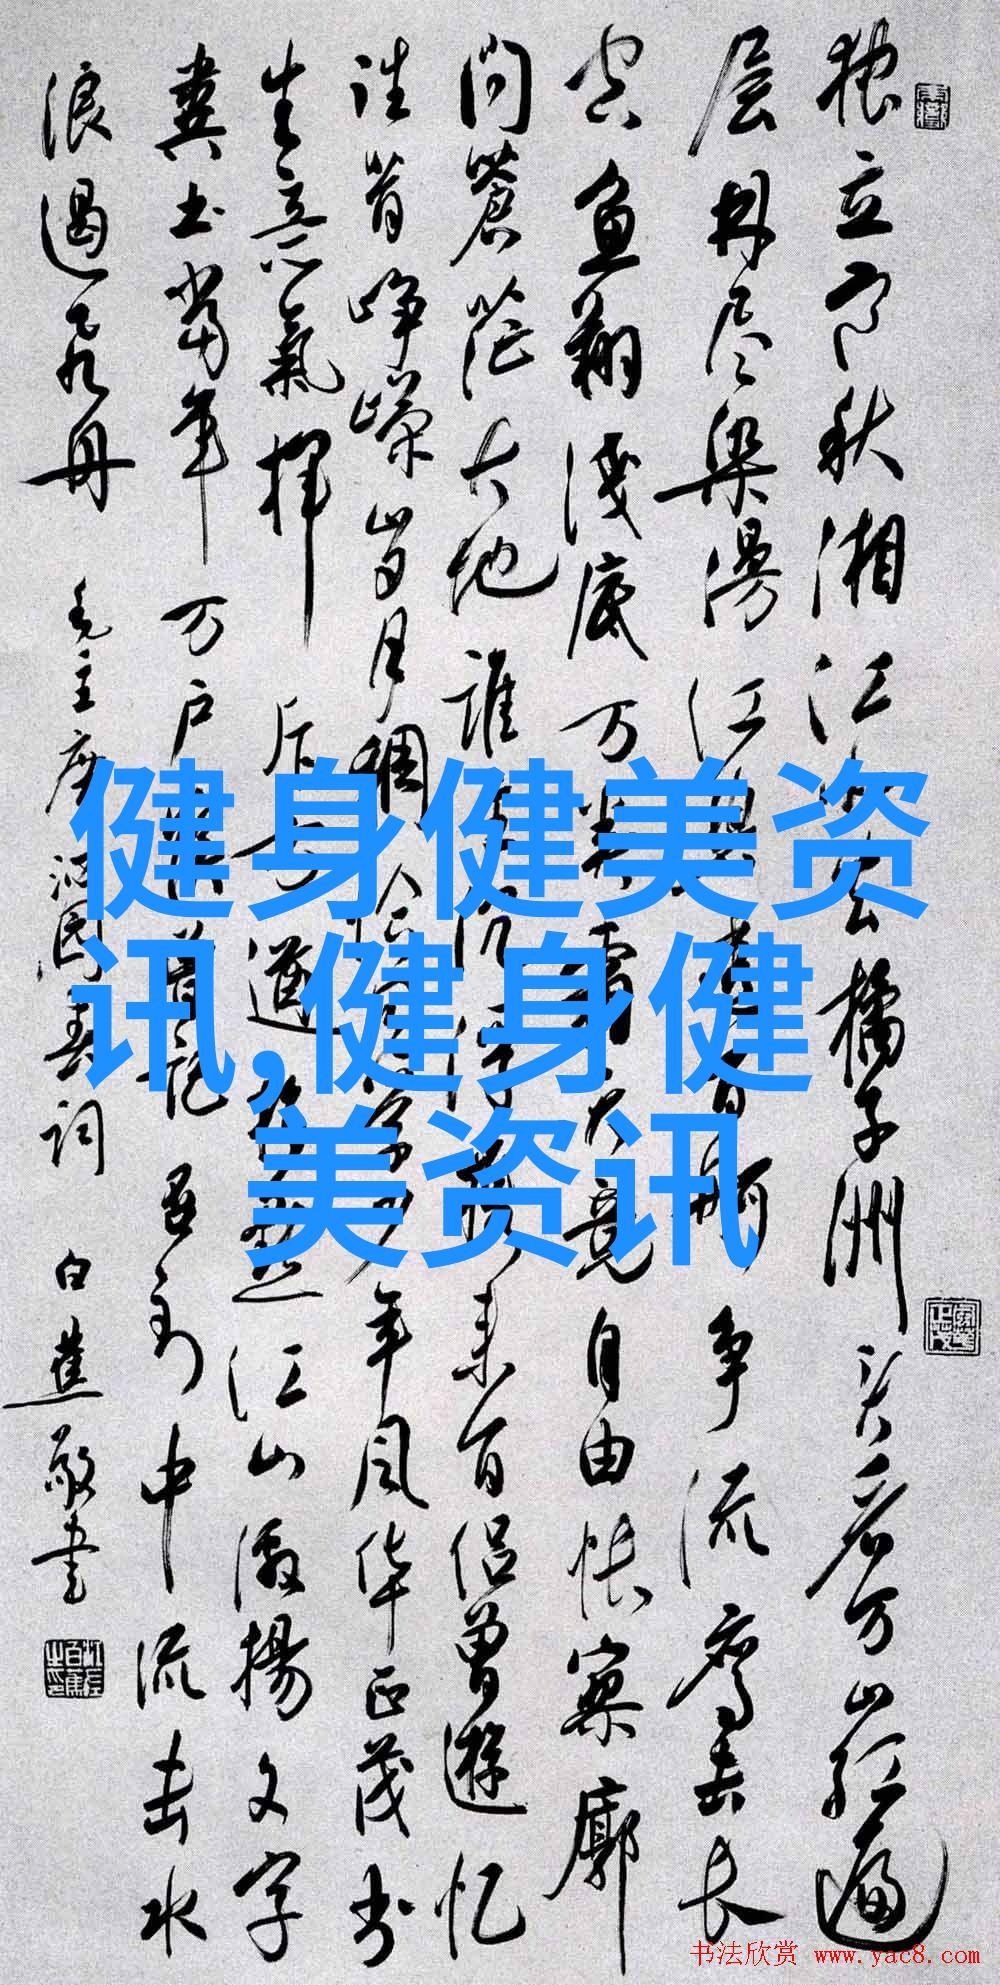 独立寒秋湘江北去橘子洲头看万山红遍
层林尽染漫江碧透百舸争流鹰击长
空鱼翔浅底万类霜天竞自由怅寥廓
问蒼茫大地谁主沉浮携来百侣曾遊忆
往昔峥嵘岁月稠恰同学少年风华正茂书
生意氣挥斥方遒指点江山激揚文字
粪土当年万户侯曾记否到中流击水
浪遏飞舟 毛主席沁园春词 白蕉敬书
健身健美资
讯,健身健
美资讯
书法欣赏 www.yac8.com